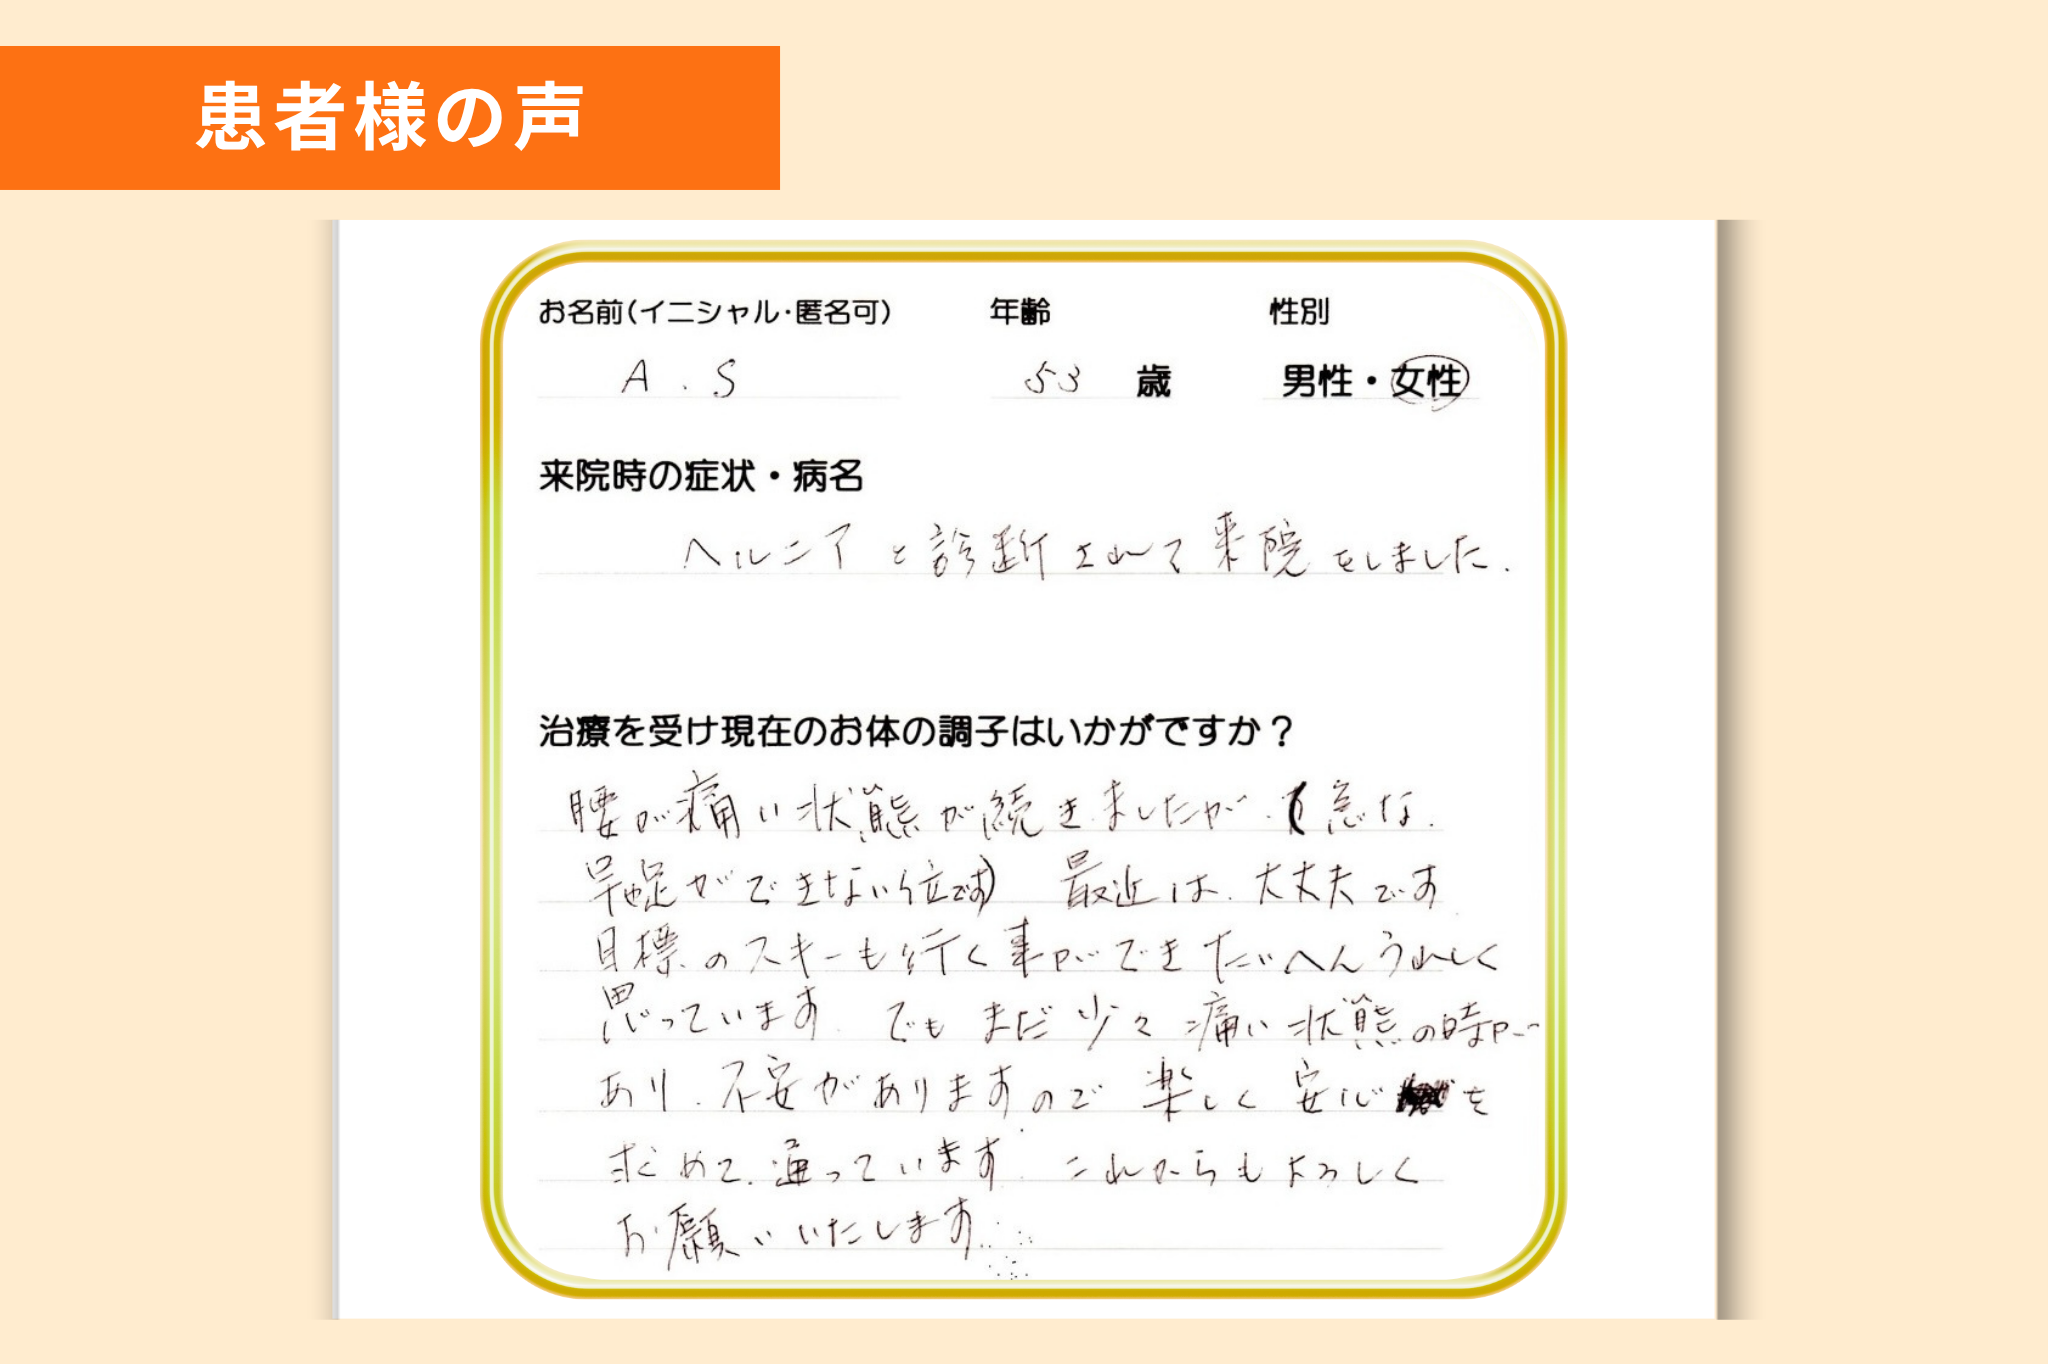 患者様の声
お名前(イニシャル・匿名可) 年齢 性別
A.S 53 歳 男性・女性
来院時の症状・病名
ヘルニアと診断されて来院をしました.
治療を受け現在のお体の調子はいかがですか？
腰が痛い状態が続きましたが、(急な
早足ができない位です) 最近は、大丈夫です
目標のスキーも行く事ができたいへんうれしく
思っています. でもまだ少々痛い状態の時が
あり、不安がありますので楽しく安心を
求めて、通っています. これからもよろしく
お願いいたします.